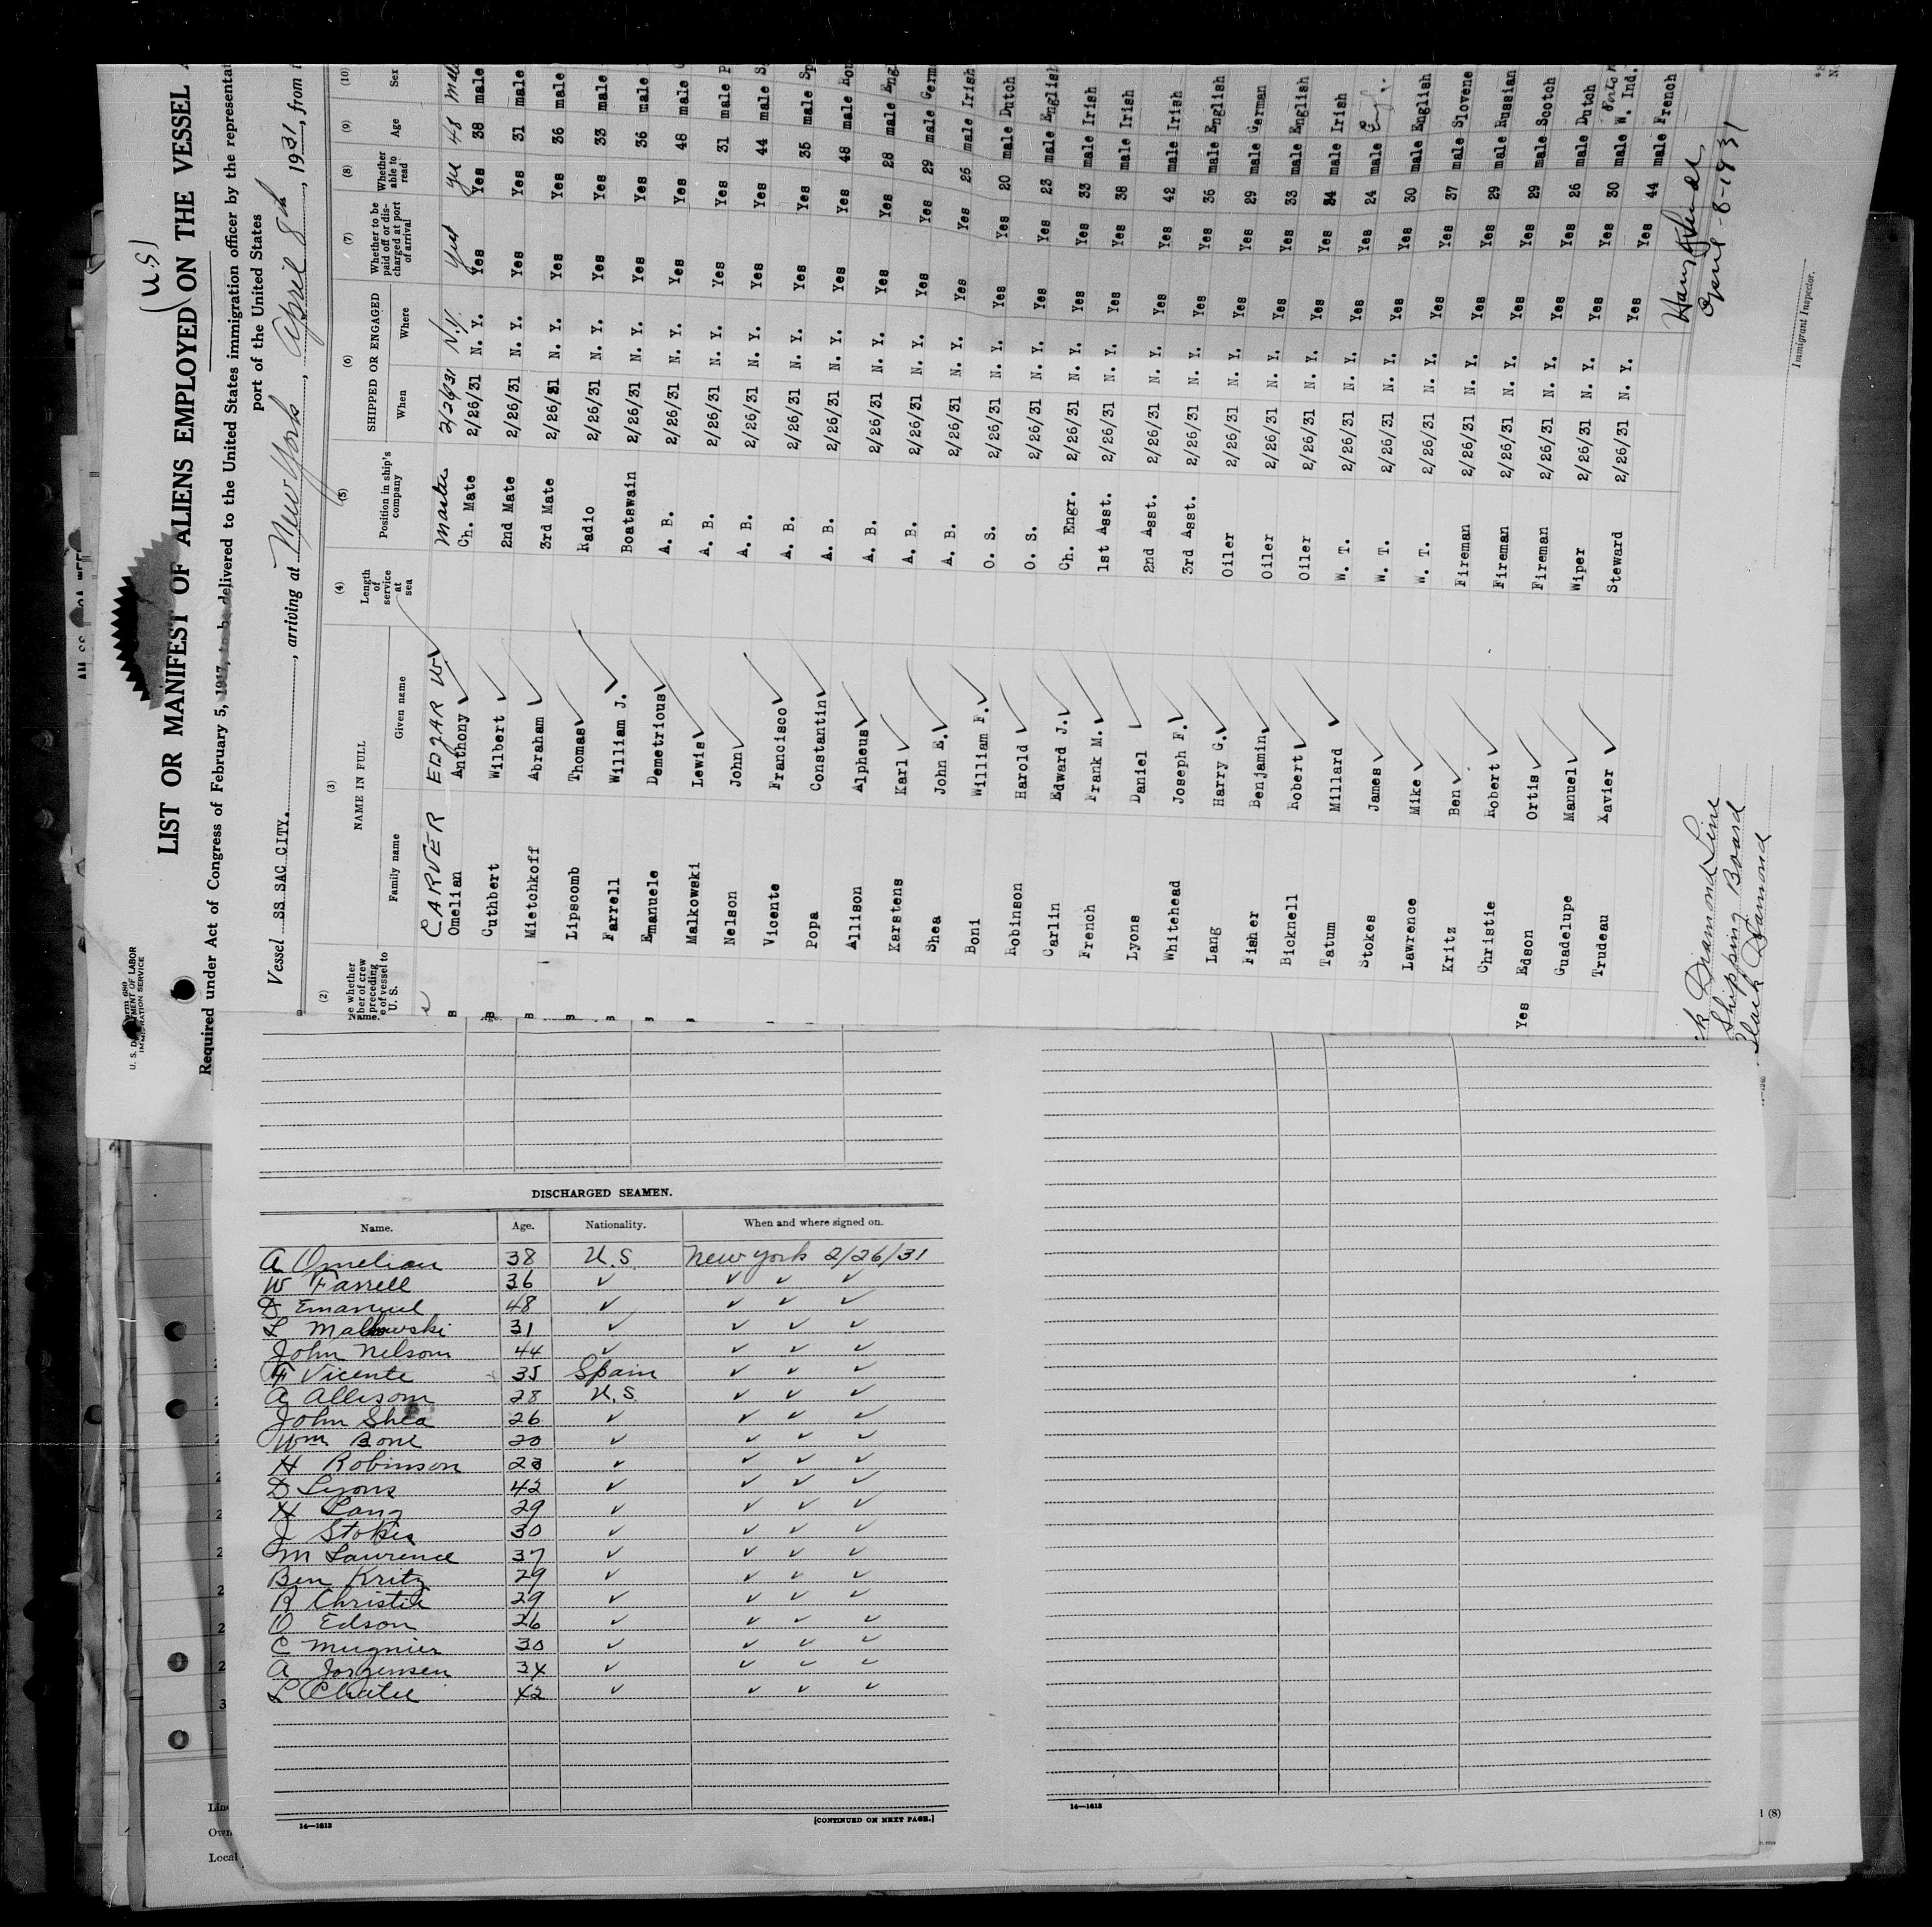 U. S. DEPARTMENT OF LABOR
IMMIGRATION SERVICE
(U.S)
LIST OR MANIFEST OF ALIENS EMPLOYED ON THE VESSEL
Required under Act of Congress of February 5, 1917, to be delivered to the United States immigration officer by the representat
port of the United States
Vessel SS SAC CITY., arriving at New York, April 8th, 1931, from
(2) (3) (4) (5) (6) (7) (8) (9) (10)
NAME IN FULL
Family name Given name
Length of service at sea
Position in ship's company
SHIPPED OR ENGAGED
When Where
Whether to be paid off or discharged at port of arrival
Whether able to read
Age
Sex
CARVER EDGAR W Master 2/26/31 N.Y. Yes yes 48 male
Omelian Anthony Ch. Mate 2/26/31 N. Y. Yes Yes 38 male
Cuthbert Wilbert 2nd Mate 2/26/31 N. Y. Yes Yes 31 male
Mietchkoff Abraham 3rd Mate 2/26/31 N. Y. Yes Yes 36 male
Lipscomb Thomas Radio 2/26/31 N. Y. Yes Yes 33 male
Farrell William J. Boatswain 2/26/31 N. Y. Yes Yes 36 male
Emanuele Demetrious A. B. 2/26/31 N. Y. Yes Yes 48 male
Malkowski Lewis A. B. 2/26/31 N. Y. Yes Yes 31 male P
Nelson John A. B. 2/26/31 N. Y. Yes Yes 44 male S
Vicente Francisco A. B. 2/26/31 N. Y. Yes Yes 35 male Sp
Popa Constantin A. B. 2/26/31 N. Y. Yes Yes 48 male Rou
Allison Alpheus A. B. 2/26/31 N. Y. Yes Yes 28 male Engl
Karstens Karl A. B. 2/26/31 N. Y. Yes Yes 29 male Germ
Shea John E. A. B. 2/26/31 N. Y. Yes Yes 26 male Irish
Boni William F. O. S. 2/26/31 N. Y. Yes Yes 20 male Dutch
Robinson Harold O. S. 2/26/31 N. Y. Yes Yes 23 male English
Carlin Edward J. Ch. Engr. 2/26/31 N. Y. Yes Yes 33 male Irish
French Frank M. 1st Asst. 2/26/31 N. Y. Yes Yes 38 male Irish
Lyons Daniel 2nd Asst. 2/26/31 N. Y. Yes Yes 42 male Irish
Whitehead Joseph F. 3rd Asst. 2/26/31 N. Y. Yes Yes 36 male English
Lang Harry G. Oiler 2/26/31 N. Y. Yes Yes 29 male German
Fisher Benjamin Oiler 2/26/31 N. Y. Yes Yes 33 male English
Bicknell Robert Oiler 2/26/31 N. Y. Yes Yes 34 male Irish
Tatum Millard W. T. 2/26/31 N. Y. Yes Yes 24 male
Stokes James W. T. 2/26/31 N. Y. Yes Yes 30 male English
Lawrence Mike W. T. 2/26/31 N. Y. Yes Yes 37 male Slovene
Kritz Ben Fireman 2/26/31 N. Y. Yes Yes 29 male Russian
Christie Robert Fireman 2/26/31 N. Y. Yes Yes 29 male Scotch
Yes Edson Ortis Fireman 2/26/31 N. Y. Yes Yes 26 male Dutch
Guadelupe Manuel Wiper 2/26/31 N. Y. Yes Yes 30 male W. Ind.
Trudeau Xavier Steward 2/26/31 N. Y. Yes Yes 44 male French
Diamond Line
Shipping Board
Black Diamond
April-8-1931
Immigrant Inspector.
DISCHARGED SEAMEN.
Name. Age. Nationality. When and where signed on.
A Omelian 38 U.S. New York 2/26/31
W Farrell 36 ✓ ✓ ✓ ✓
D Emanuel 48 ✓ ✓ ✓ ✓
L Malkowski 31 ✓ ✓ ✓ ✓
John Nelson 44 ✓ ✓ ✓ ✓
F Vicente 35 Spain ✓ ✓ ✓
A Allison 28 U.S. ✓ ✓ ✓
John Shea 26 ✓ ✓ ✓ ✓
Wm Boni 20 ✓ ✓ ✓ ✓
H Robinson 23 ✓ ✓ ✓ ✓
D Lyons 42 ✓ ✓ ✓ ✓
H Lang 29 ✓ ✓ ✓ ✓
J Stokes 30 ✓ ✓ ✓ ✓
M Lawrence 37 ✓ ✓ ✓ ✓
Ben Kritz 29 ✓ ✓ ✓ ✓
R Christie 29 ✓ ✓ ✓ ✓
O Edson 26 ✓ ✓ ✓ ✓
C Mugnier 30 ✓ ✓ ✓ ✓
A Jorgensen 34 ✓ ✓ ✓ ✓
L 42 ✓ ✓ ✓ ✓
14—1613
[CONTINUED ON NEXT PAGE.]
14—1613
Line
Own
Local
(8)